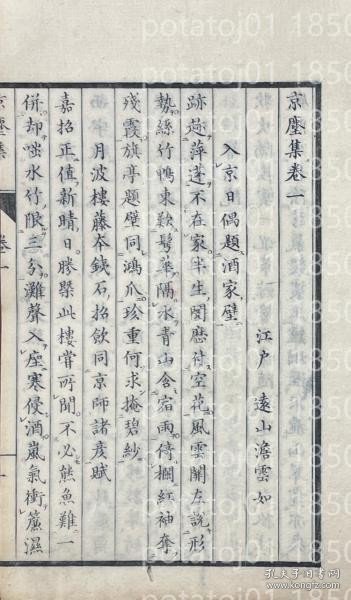 京塵集卷一
江戶 遠山澹雲如
入京日偶題酒家壁
跡萍蓬不在家半生閱歷付空花風雲關左說形
勢絲竹鴨東歎鬢華隔水青山含宿雨倚欄紅袖奪
殘霞旗亭題壁同鴻爪珍重何求掩碧紗
月波樓藤本鐵石招飲同京師諸彥賦
嘉招正值新晴日勝槩此樓嘗所聞不必熊魚難一
併却嗤水竹限三分灘聲入座寒侵酒嵐氣衝簾濕
京塵集 卷一
potatoj01 1850
孔夫子旧书网